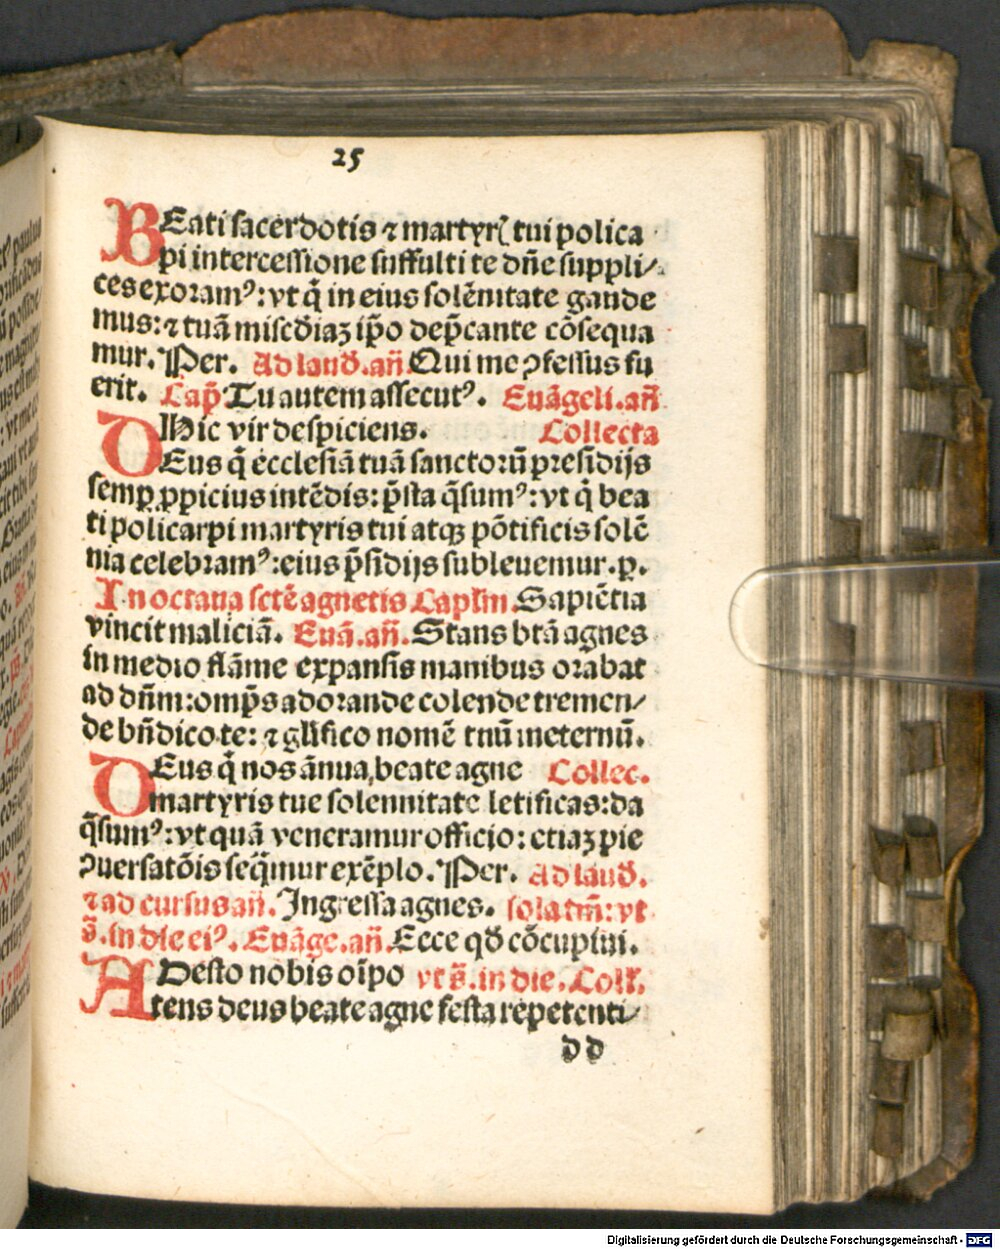 25
BEati sacerdotis ⁊ martyrꝭ tui polica
pi intercessione suffulti te dn̄e suppli⸗
ces exoramꝰ: vt q̄ in eius solēnitate gaude
mus: ⁊ tuā misc̄diaꝫ ip̄o dep̄cante cōsequa
mur. Per. Ad laud̄. an̄. Qui me ꝯfessus fu
erit. Cap̄ Tu autem assecutꝰ. Euāgeli. an̄
Hic vir despiciens. Collecta
DEus q̄ ecclesiā tuā sanctorū presidijs
semꝑ ꝓpicius intēdis: p̄sta q̄sumꝰ: vt q̄ bea
ti policarpi martyris tui atqꝫ pōtificis solē
nia celebramꝰ: eius p̄sidijs subleuemur. p.
In octaua sctē agnetis Caplm̄. Sapiētia
vincit maliciā. Euā. an̄. Stans btā agnes
in medio flāme expansis manibus orabat
ad dn̄m: omp̄s adorande colende tremen⸗
de bn̄dico te: ⁊ glīfico nomē tuū ineternū.
DEus q̄ nos ānua beate agne Collec.
martyris tue solennitate letificas: da
q̄sumꝰ: vt quā veneramur officio: etiaꝫ pie
ꝯuersatōis seq̄mur exēplo. Per. Ad laud̄.
⁊ ad cursus an̄. Ingressa agnes. sola tm̄: vt
s̄. in die eiꝰ. Euāge. an̄. Ecce qd̄ cōcupiui.
ADesto nobis oīpo vt s̄. in die. Coll̄.
tens deus beate agne festa repetenti⸗
dd
Digitalisierung gefördert durch die Deutsche Forschungsgemeinschaft - DFG